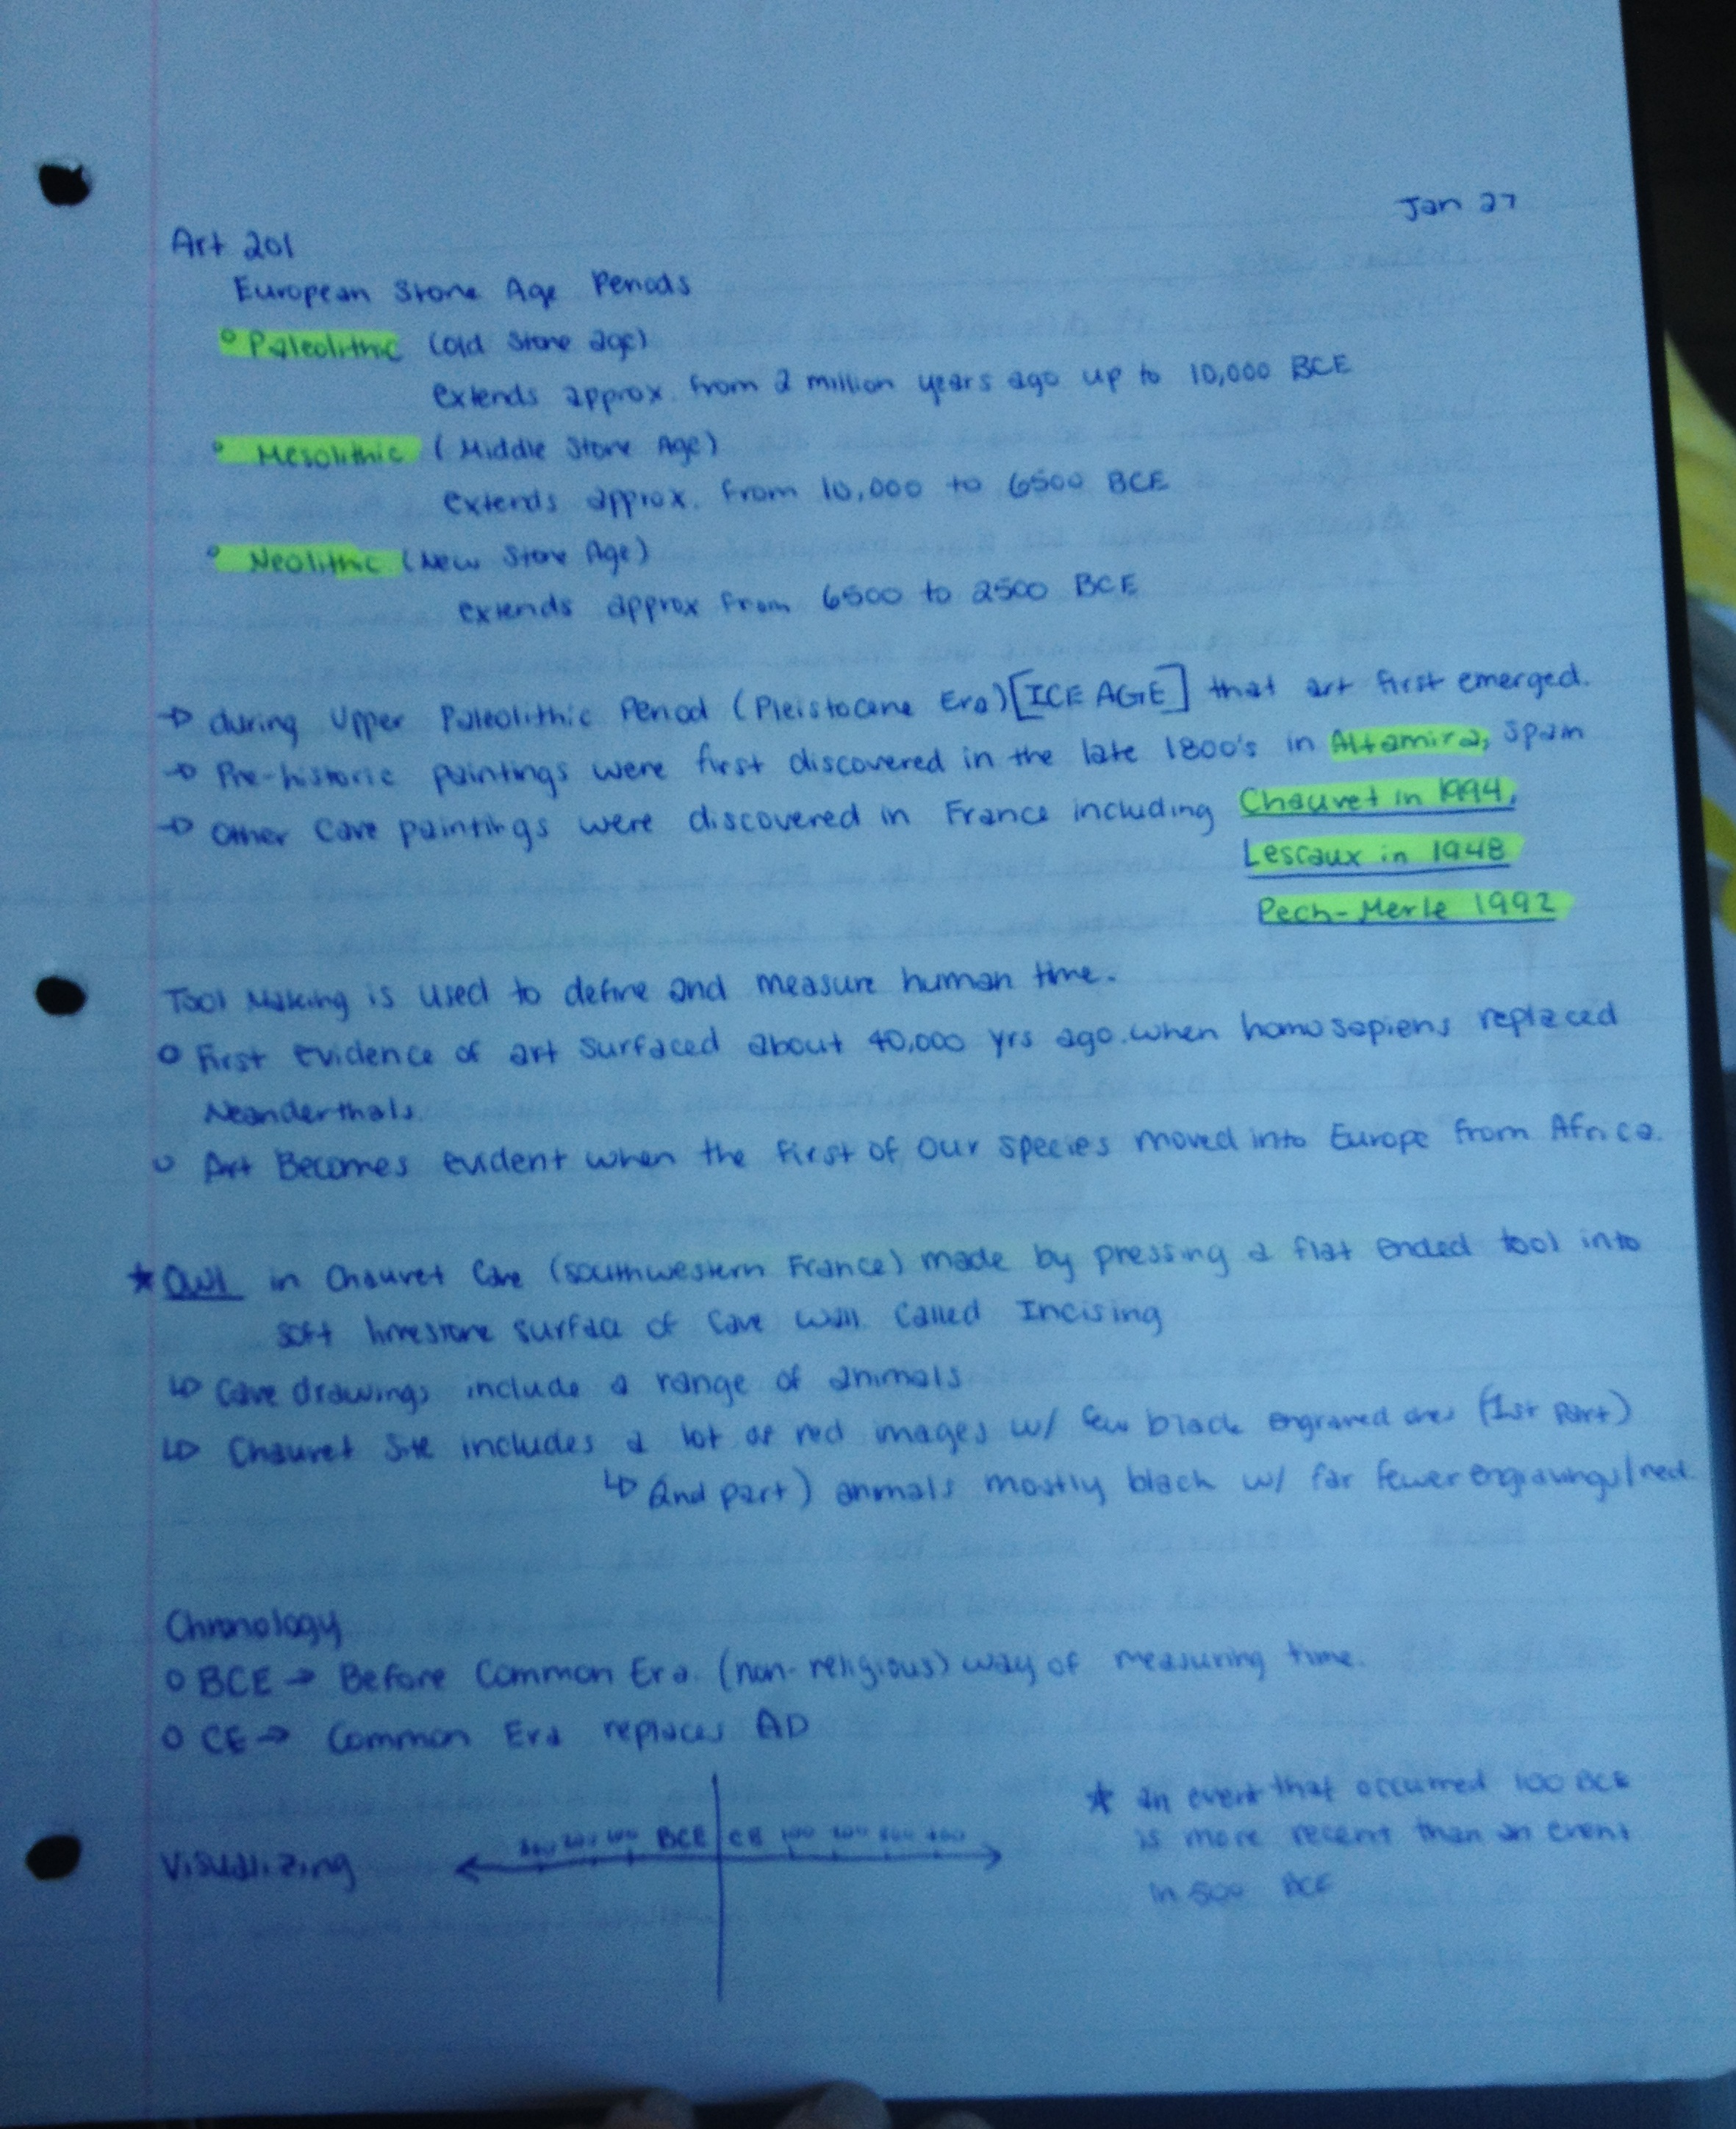 Jan 27
Art 201
European Stone Age Periods
Paleolithic (old stone age)
extends approx. from 2 million years ago up to 10,000 BCE
Mesolithic (Middle Stone Age)
extends approx. from 10,000 to 6500 BCE
Neolithic (New Stone Age)
extends approx from 6500 to 2500 BCE
→ during Upper Paleolithic Period (Pleistocene Era) [ICE AGE] that art first emerged.
→ Pre-historic paintings were first discovered in the late 1800's in Altamira, Spain
→ Other Cave paintings were discovered in France including Chauvet in 1994,
Lescaux in 1948
Pech-Merle 1992
Tool Making is used to define and measure human time.
o First evidence of art surfaced about 40,000 yrs ago. when homosapiens replaced
Neanderthals.
o Art Becomes evident when the first of our species moved into Europe from Africa.
★ Owl in Chauvet Cave (southwestern France) made by pressing a flat ended tool into
soft limestone surface of Cave wall. Called Incising
↳ Cave drawings include a range of animals
↳ Chauvet Site includes a lot of red images w/ few black engraved ones (1st part)
↳ 2nd part) animals mostly black w/ far fewer engravings/red.
Chronology
o BCE → Before Common Era. (non-religious) way of measuring time.
o CE → Common Era replaces AD
Visualizing 300 200 100 BCE CE 100 200 300 400
★ an event that occurred 100 BCE
is more recent than an event
in 500 BCE